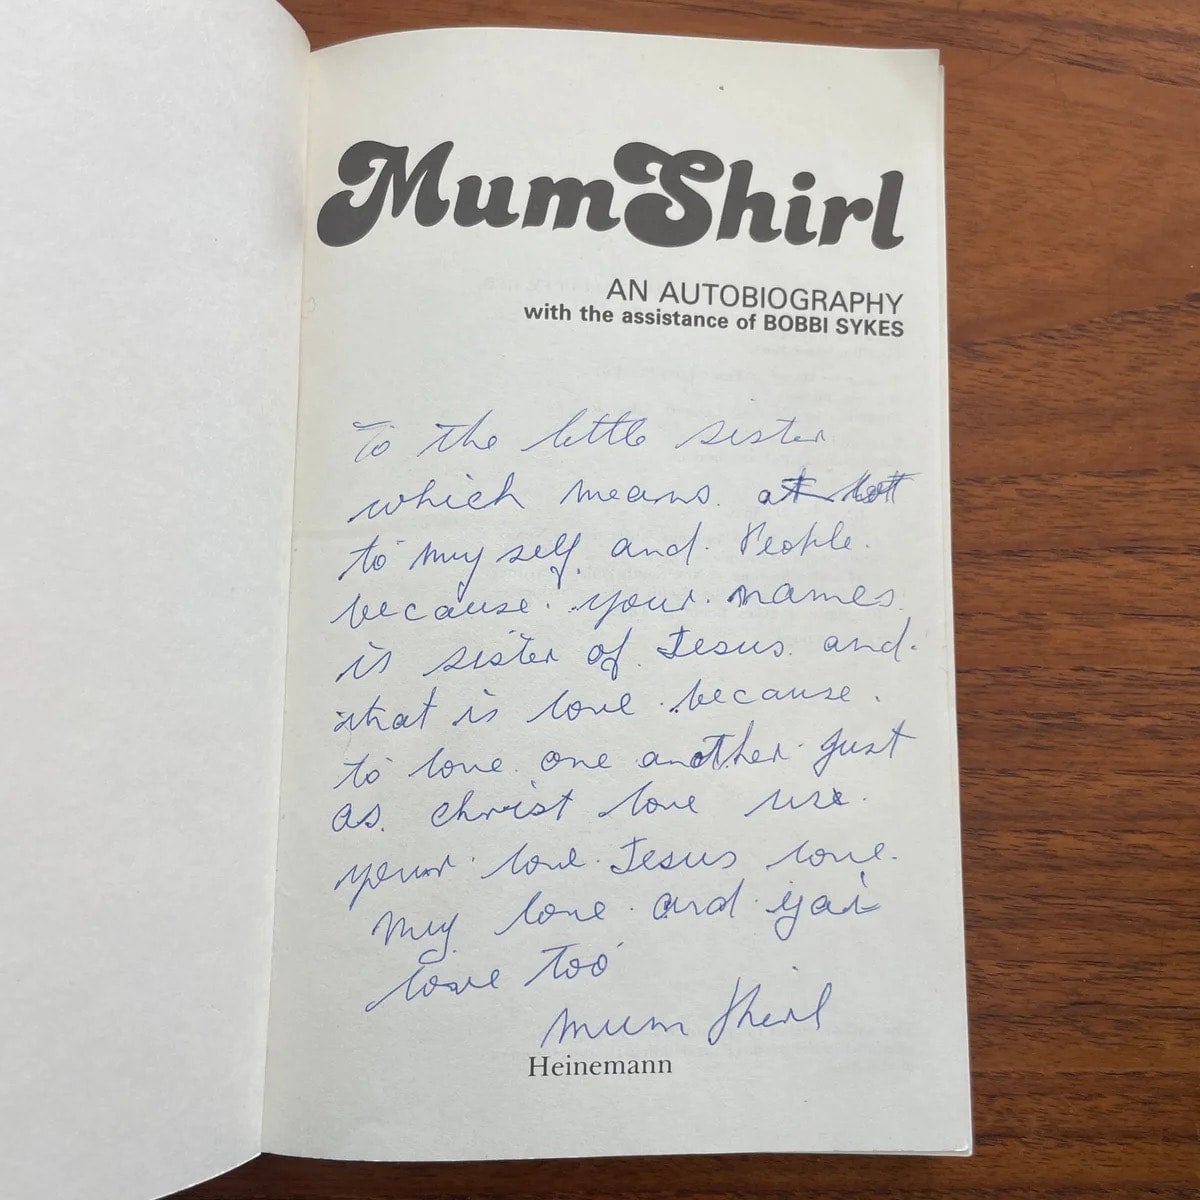 MumShirl
AN AUTOBIOGRAPHY
with the assistance of BOBBI SYKES
To the little sister
which means a
to my self and People.
because your names
is sister of Jesus and
that is love because.
to love one another just
as christ love use
your love Jesus love.
My love and
love too
Mum Shirl
Heinemann